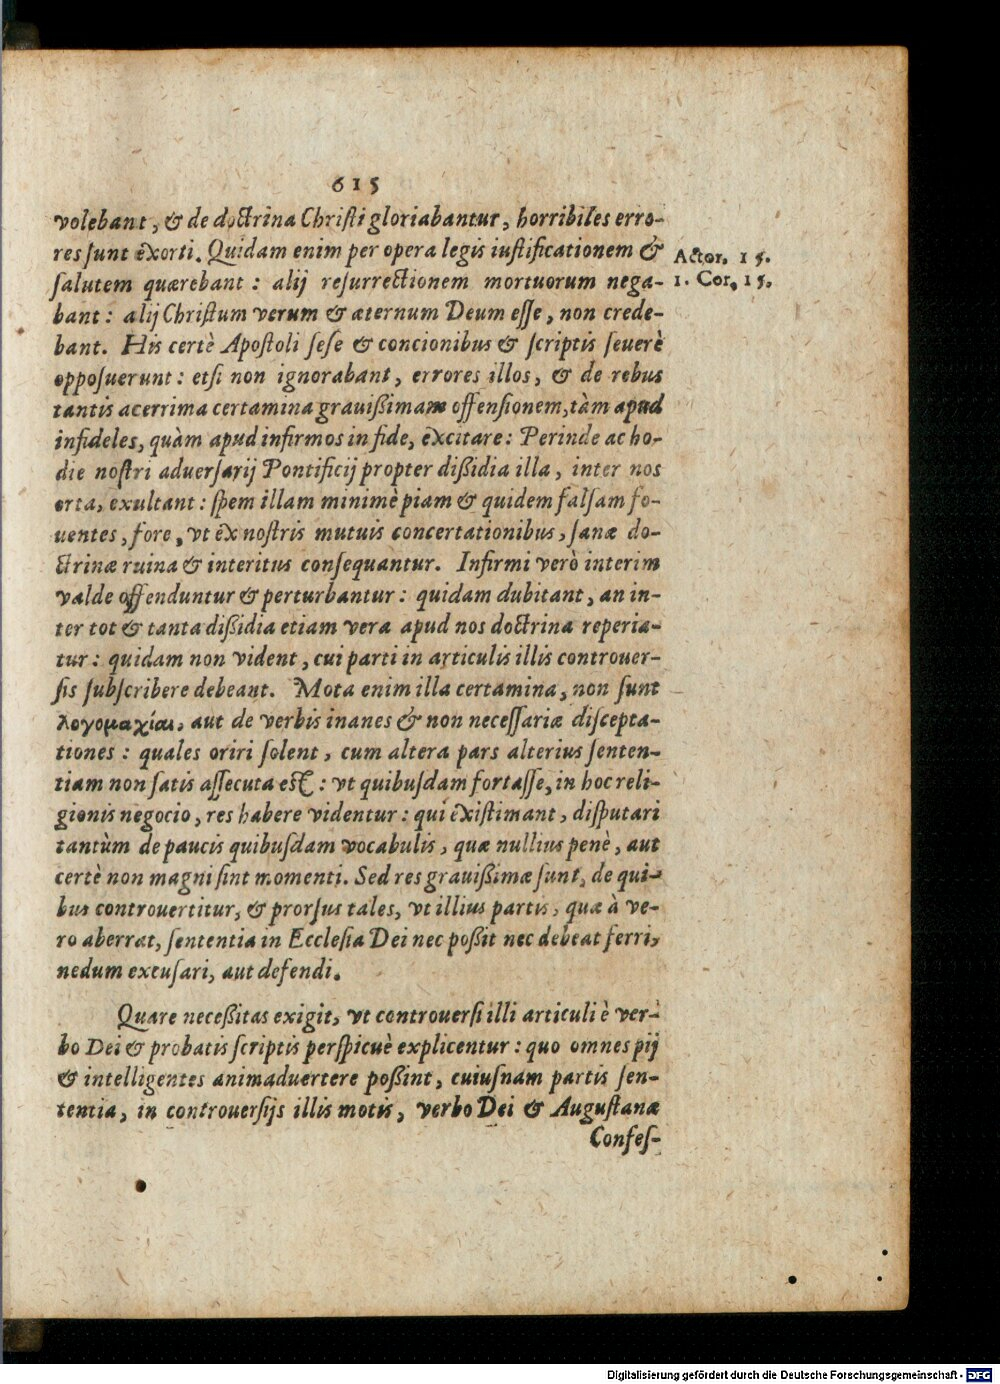 615
volebant, & de doctrina Christi gloriabantur, horribiles erro-
res sunt exorti. Quidam enim per opera legis iustificationem &
Actor. 15.
salutem quærebant : alij resurrectionem mortuorum nega-
1. Cor. 15.
bant : alij Christum verum & æternum Deum esse, non crede-
bant. His certè Apostoli sese & concionibus & scriptis seuerè
opposuerunt : etsi non ignorabant, errores illos, & de rebus
tantis acerrima certamina grauißimam offensionem, tàm apud
infideles, quàm apud infirmos in fide, excitare : Perinde ac ho-
die nostri aduersarij Pontificij propter dißidia illa, inter nos
orta, exultant : spem illam minimè piam & quidem falsam fo-
uentes, fore, vt ex nostris mutuis concertationibus, sanæ do-
ctrinæ ruina & interitus consequantur. Infirmi verò interim
valde offenduntur & perturbantur : quidam dubitant, an in-
ter tot & tanta dißidia etiam vera apud nos doctrina reperia-
tur : quidam non vident, cui parti in articulis illis controuer-
sis subscribere debeant. Mota enim illa certamina, non sunt
λογομαχίαι, aut de verbis inanes & non necessariæ discepta-
tiones : quales oriri solent, cum altera pars alterius senten-
tiam non satis assecuta est : vt quibusdam fortasse, in hoc reli-
gionis negocio, res habere videntur : qui existimant, disputari
tantùm de paucis quibusdam vocabulis, quæ nullius penè, aut
certè non magni sint momenti. Sed res grauißimæ sunt, de qui-
bus controuertitur, & prorsus tales, vt illius partis, quæ à ve-
ro aberrat, sententia in Ecclesia Dei nec poßit nec debeat ferri,
nedum excusari, aut defendi.
Quare neceßitas exigit, vt controuersi illi articuli è ver-
bo Dei & probatis scriptis perspicuè explicentur : quo omnes pij
& intelligentes animaduertere poßint, cuiusnam partis sen-
tentia, in controuersijs illis motis, verbo Dei & Augustanæ
Confes-
Digitalisierung gefördert durch die Deutsche Forschungsgemeinschaft - DFG